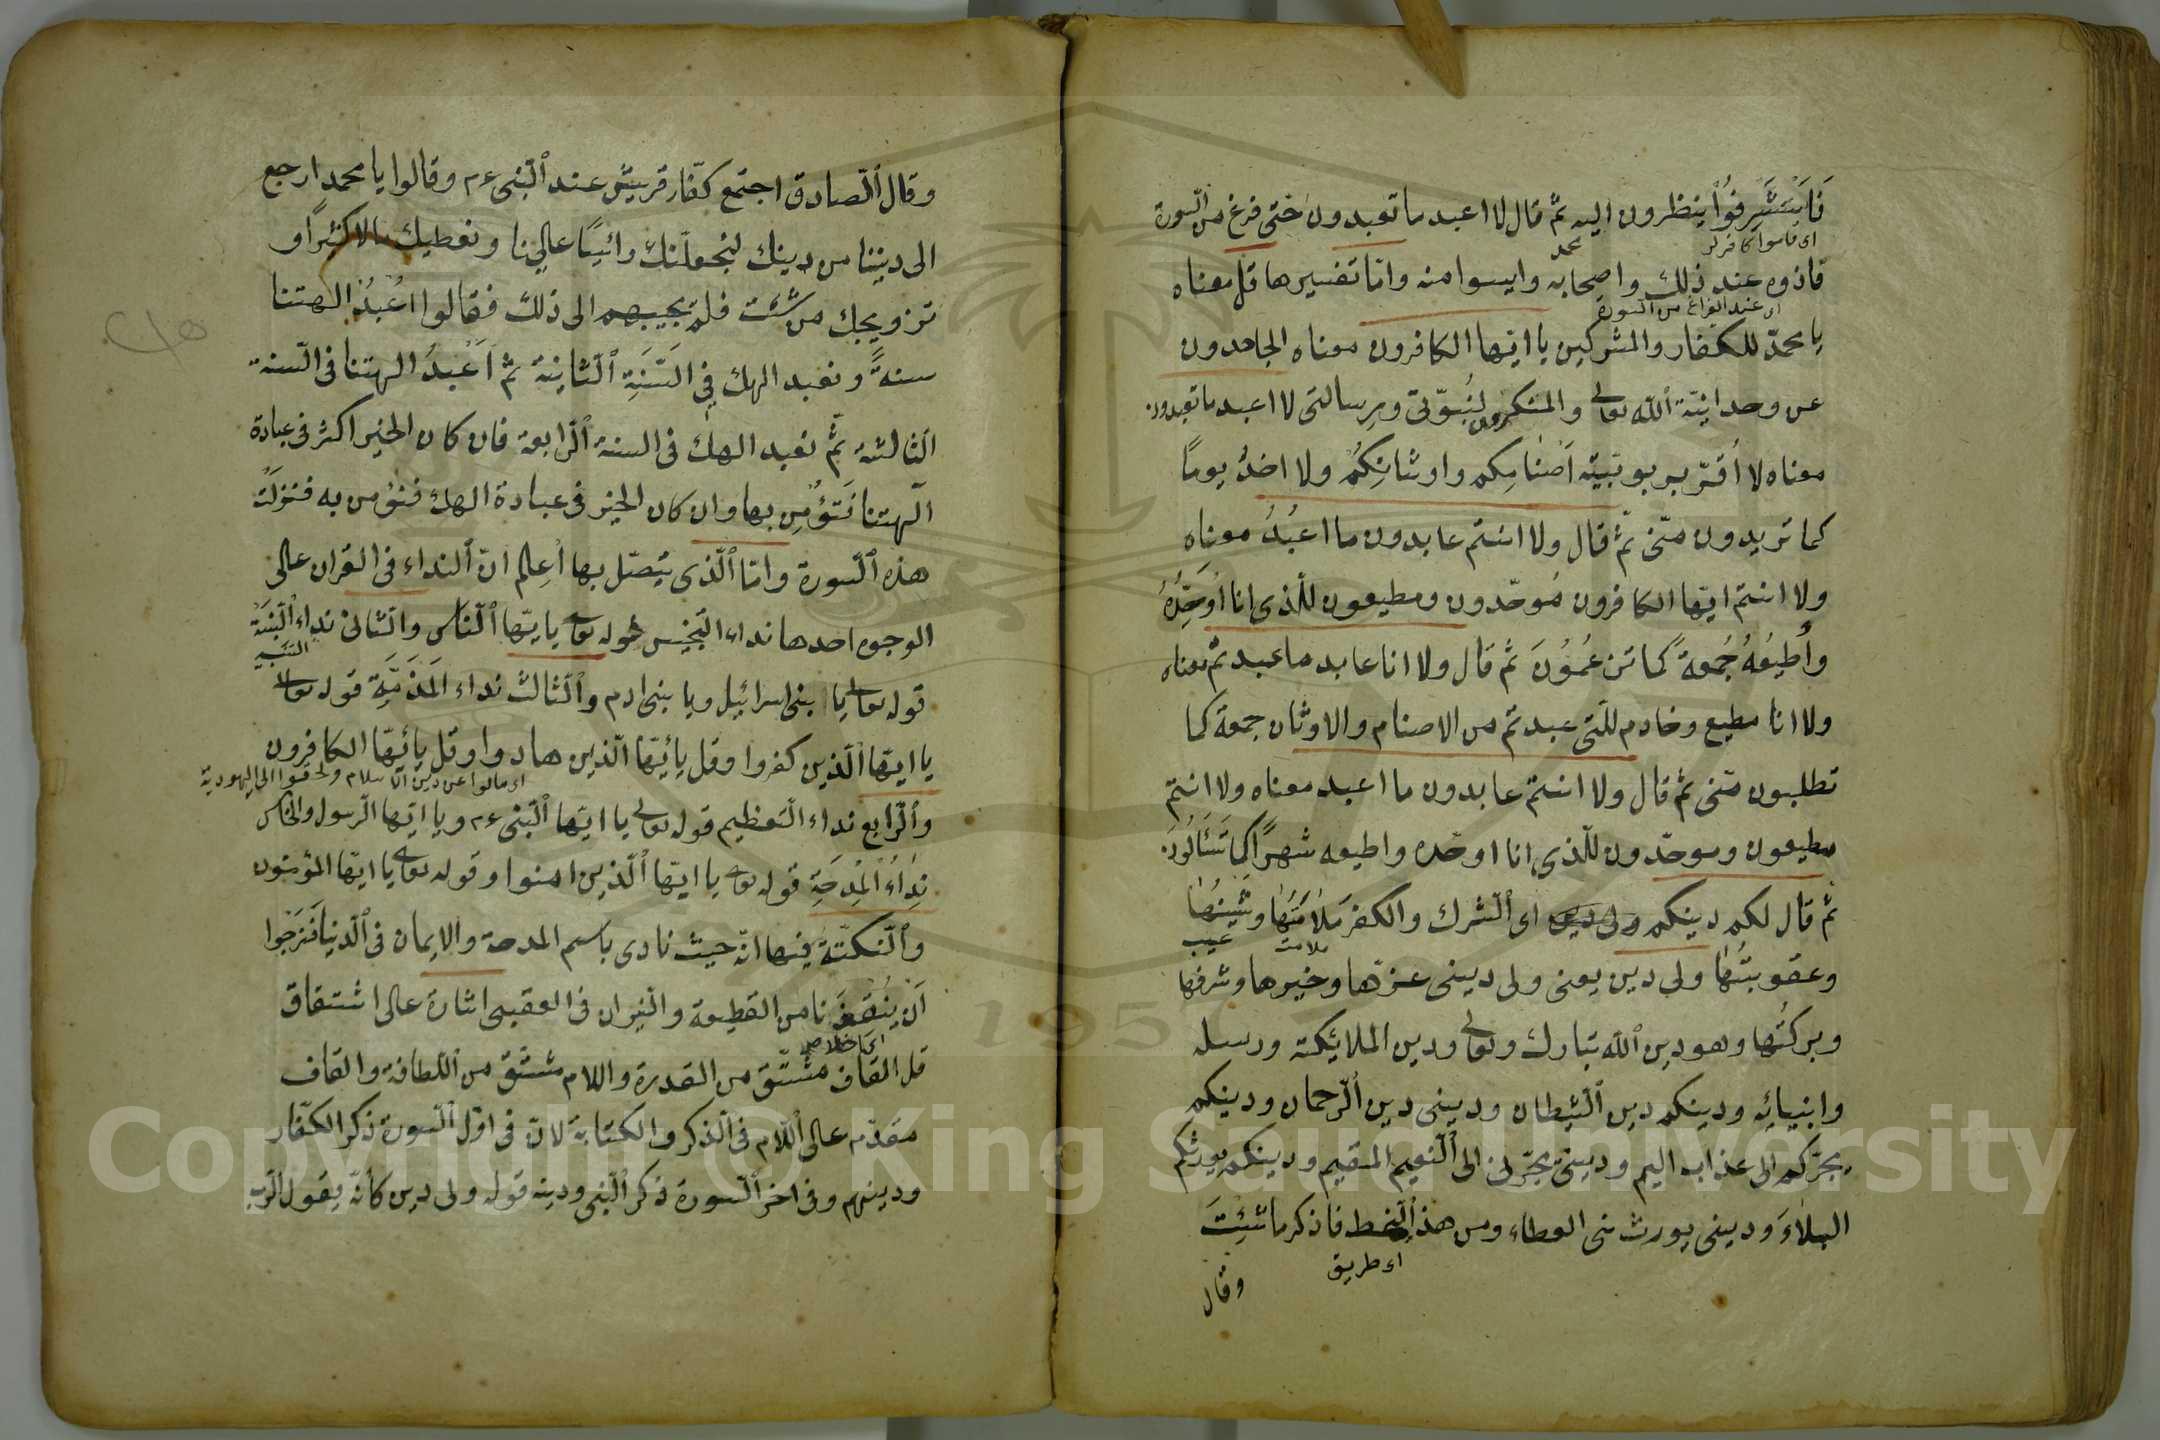 فاستشرفوا ينظرون اليه ثم قال لا اعبد ما تعبدون حتى فرغ من السورة
اى قاموا كافرلر
محمد
فاذوه عند ذلك واصحابه وايسوا منه واما تفسيرها قل معناه
اى عند الفراغ من السورة
يا محمد للكفار والمشركين يا ايها الكافرون معناه الجاحدون
عن وحدانية الله تعالى والمنكرون لنبوتى وبرسالتى لا اعبد ما تعبدون
معناه لا اقر بربوبية اصنامكم واوثانكم ولا اخذ يوما
كما تريدون منى ثم قال ولا انتم عابدون ما اعبد معناه
ولا انتم ايها الكافرون موحدون ومطيعون للذى انا اوحده
واطيعه جمعة كما تزعمون ثم قال ولا انا عابد ما عبدتم معناه
ولا انا مطيع وخادم للتى عبدتم من الاصنام والاوثان جمعة كما
تطلبون منى ثم قال ولا انتم عابدون ما اعبد معناه ولا انتم
مطيعون وموحدون للذى انا اوحده واطيعه شهرا كما تسألون
ثم قال لكم دينكم ولى دين اى الشرك والكفر ملامتها وشينها
ملامت
عيب
وعقوبتها ولى دين يعنى ولى دينى عزها وخيرها وشرفها
وبركتها وهو دين الله تبارك وتعالى ودين الملائكة ورسله
وانبيائه ودينكم دين الشيطان ودينى دين الرحمان ودينكم
يجركم الى عذاب اليم ودينى يجرنى الى النعيم المقيم ودينكم يورثكم
البلاء ودينى يورث نى العطاء ومن هذ النمط فاذكر ما شئت
اى طريق
وقال
وقال الصادق اجتمع كفار قريش عند النبى ءم وقالوا يا محمد ارجع
الى ديننا من دينك لنجعلنك رائيسا عالينا ونعطيك مالا كثيرا و
تزويجك من شئت فلم يجيبهم الى ذلك فقالوا اعبد الهتنا
سنة ونعبد الهك فى السنة الثانية ثم اعبد الهتنا فى السنة
الثالثة ثم نعبد الهك فى السنة الرابعة فان كان الخير اكثر فى عبادة
الهتنا فتؤمن بها وان كان الخير فى عبادة الهك فنؤمن به فنزلت
هذه السورة واما الذى يتصل بها اعلم ان النداء فى القران عالى
الوجوه احدها نداء التجنيس قوله تعالى يا ايها الناس والثانى نداء النسبة
قوله تعالى يا بنى اسرائيل ويا بنى ادم والثالث نداء المذمة قوله تعالى
يا ايها الذين كفروا وقل يا ئيها الذين هادوا وقل يا ئيها الكافرون
اى مالوا عن دين الاسلام ولحقوا الى اليهودية
والرابع نداء التعظيم قوله تعالى يا ايها النبى ءم ويا ايها الرسول والخامس
نداء المدحة قوله تعالى يا ايها الذين امنوا وقوله تعالى يا ايها المؤمنون
والنكتة فيها انه حيث نادى باسم المدحة والايمان فى الدنيا فنرجوا
ان ينقذنا من القطيعة والنيران فى العقبى اشارة عالى اشتقاق
قل القاف مشتق من القدرة واللام مشتق من اللطافة والقاف
مقدم عالى اللام فى الذكر والكتابة لان فى اول السورة ذكر الكفار
ودينهم وفى اخر السورة ذكر النبى ودينه قوله ولى دين كانه يقول الرب
Copyright © King Saud University
1957